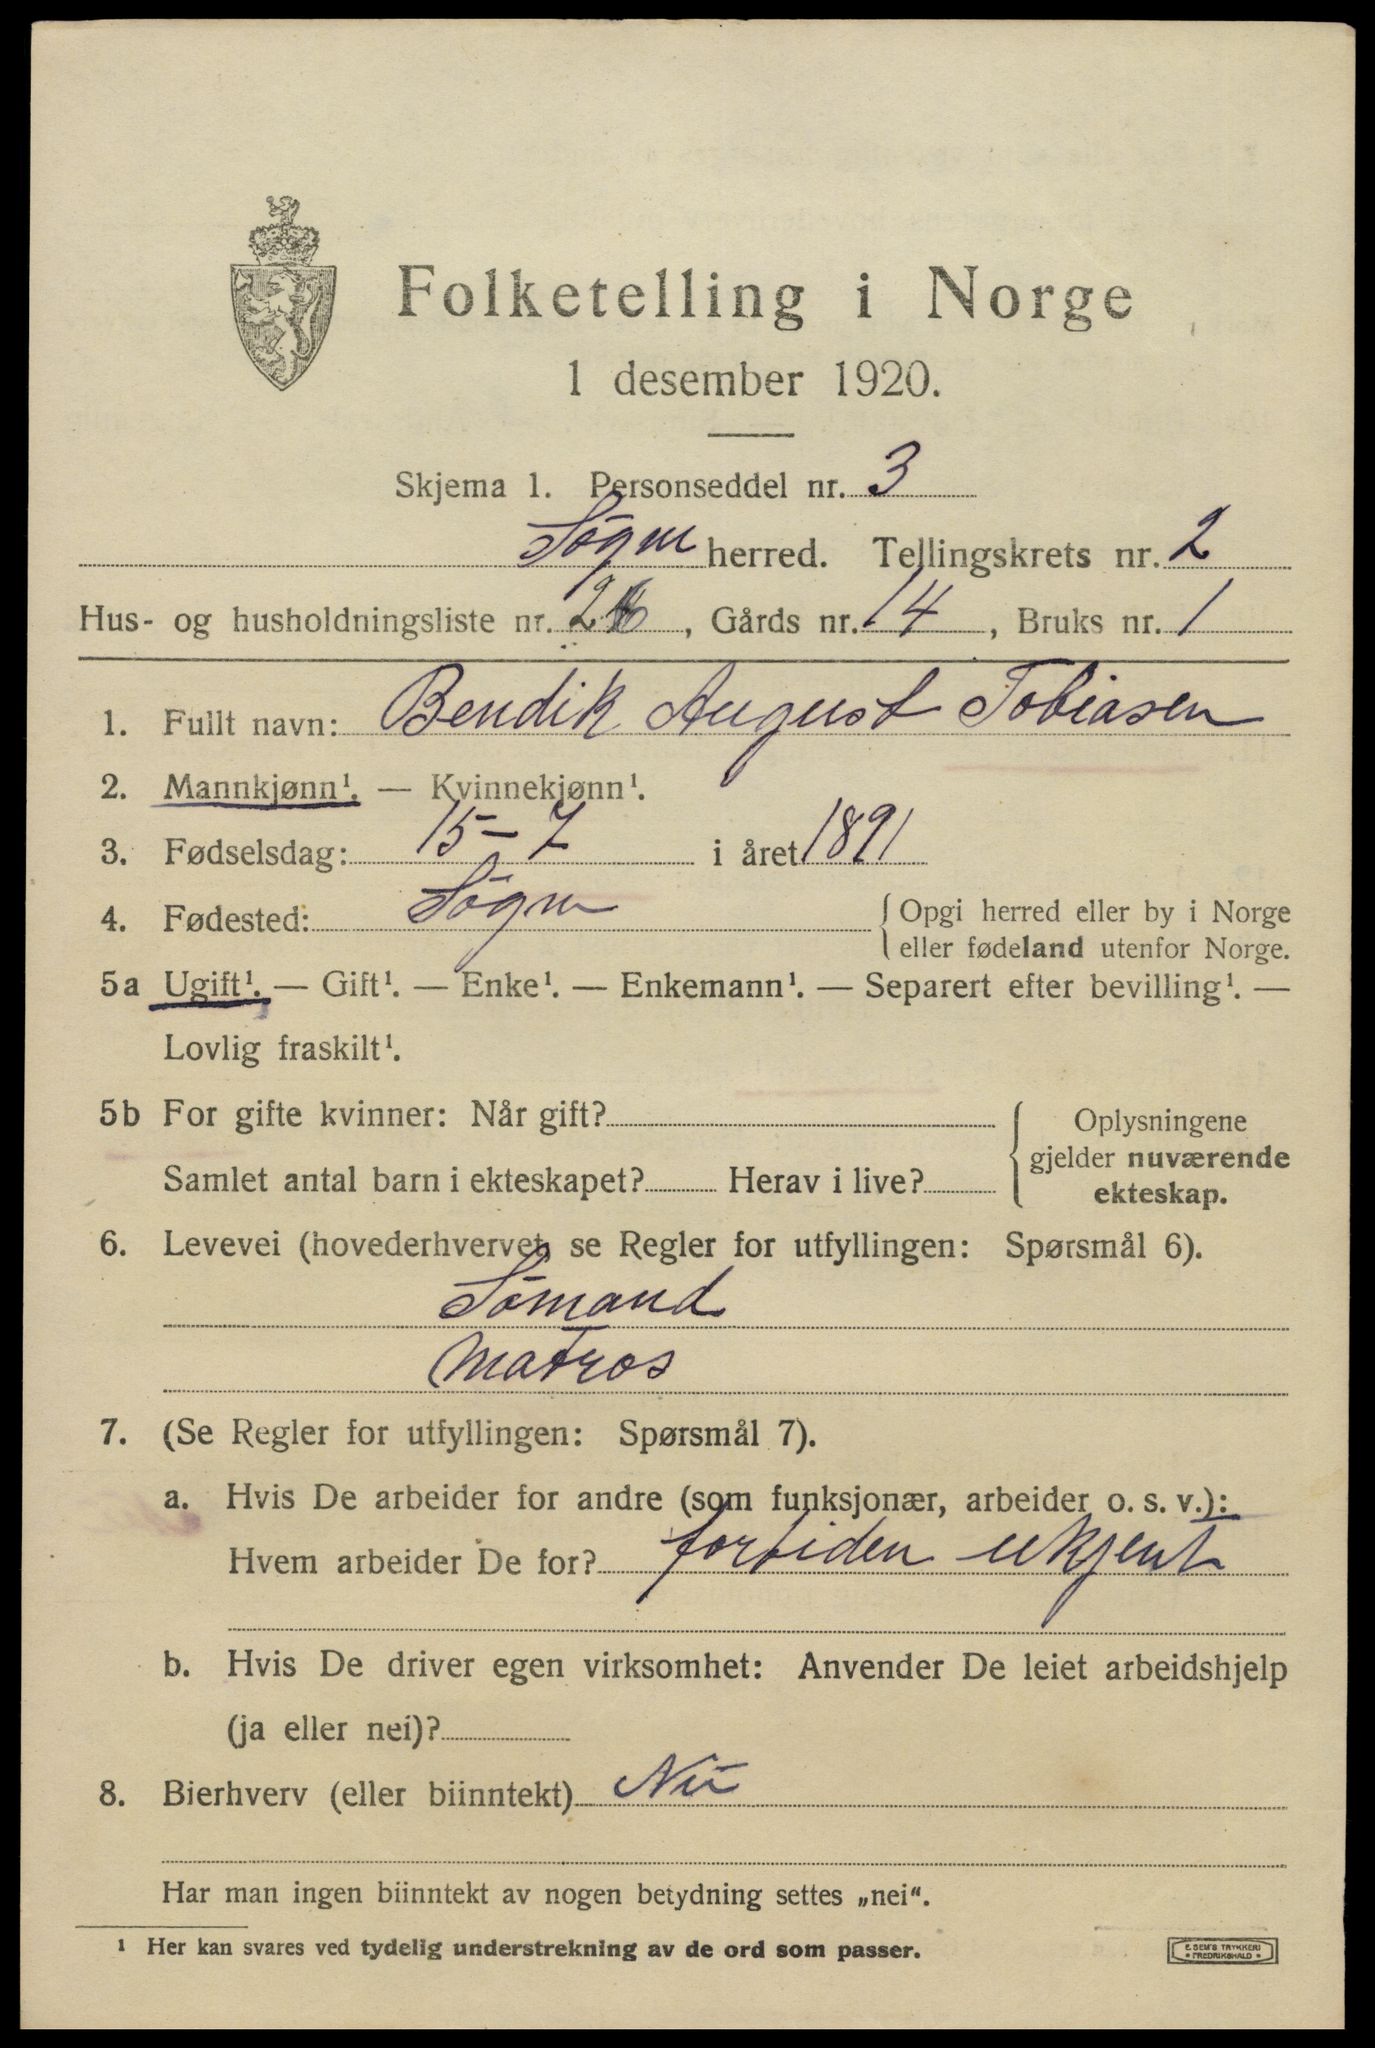 Folketelling i Norge
1 desember 1920.
Skjema 1. Personseddel nr. 3
Søgne herred. Tellingskrets nr. 2
Hus- og husholdningsliste nr. , Gårds nr. 14, Bruks nr. 1
1. Fullt navn: Bendik August Tobiasen
2. Mannkjønn¹. — Kvinnekjønn¹.
3. Fødselsdag: 15-7 i året 1891
4. Fødested: Søgne { Opgi herred eller by i Norge
eller fødeland utenfor Norge.
5a Ugift¹. — Gift¹. — Enke¹. — Enkemann¹. — Separert efter bevilling¹. —
Lovlig fraskilt¹.
5b For gifte kvinner: Når gift? { Oplysningene
gjelder nuværende
Samlet antal barn i ekteskapet? Herav i live? ekteskap.
6. Levevei (hovederhvervet, se Regler for utfyllingen: Spørsmål 6).
Sømand
Matros
7. (Se Regler for utfyllingen: Spørsmål 7).
a. Hvis De arbeider for andre (som funksjonær, arbeider o. s. v.):
Hvem arbeider De for? fortiden ukjent
b. Hvis De driver egen virksomhet: Anvender De leiet arbeidshjelp
(ja eller nei)?
8. Bierhverv (eller biinntekt) Nei
Har man ingen biinntekt av nogen betydning settes „nei“.
¹ Her kan svares ved tydelig understrekning av de ord som passer.
E. SEM'S TRYKKERI
* FREDRIKSHALD *